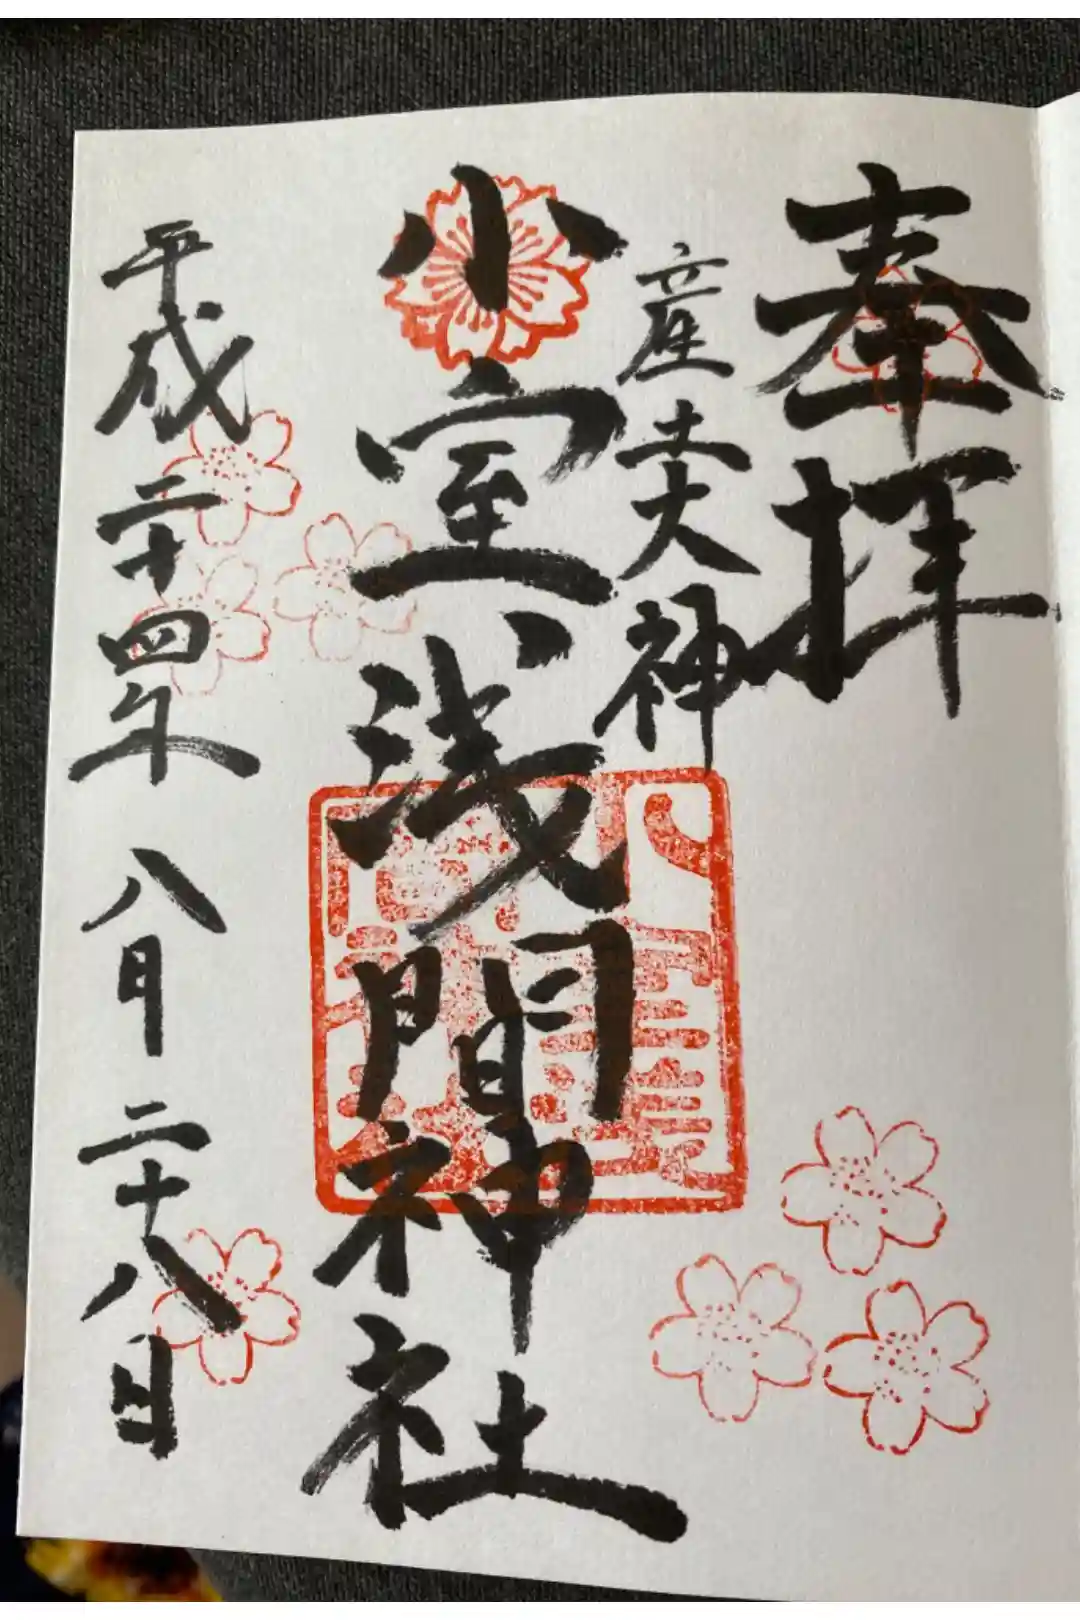 奉拝
産土大神
小室浅間神社
平成二十四年 八月二十八日